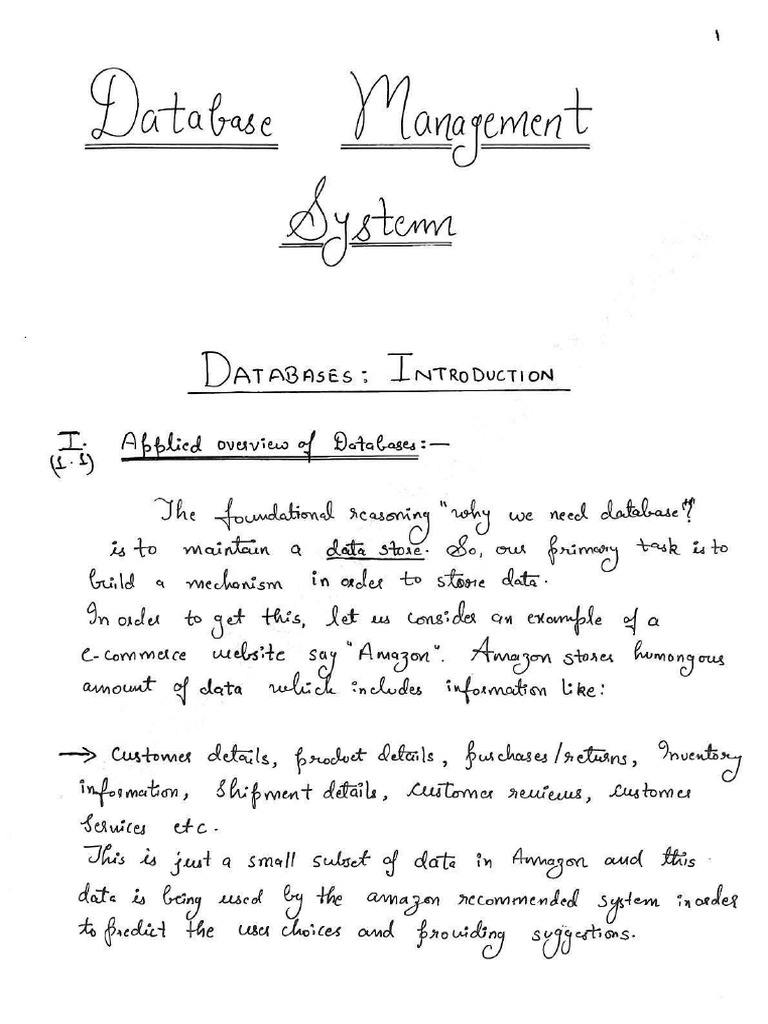 1
Database Management
System
DATABASES: INTRODUCTION
I. Applied overview of Databases:—
(1.1)
The foundational reasoning "why we need database"?
is to maintain a data store. So, our primary task is to
build a mechanism in order to store data.
In order to get this, let us consider an example of a
e-commerce website say "Amazon". Amazon stores humongous
amount of data which includes information like:
→ Customer details, product details, purchases/returns, Inventory
information, Shipment details, customer reviews, customer
Services etc.
This is just a small subset of data in Amazon and this
data is being used by the amazon recommended system inorder
to predict the user choices and providing suggestions.